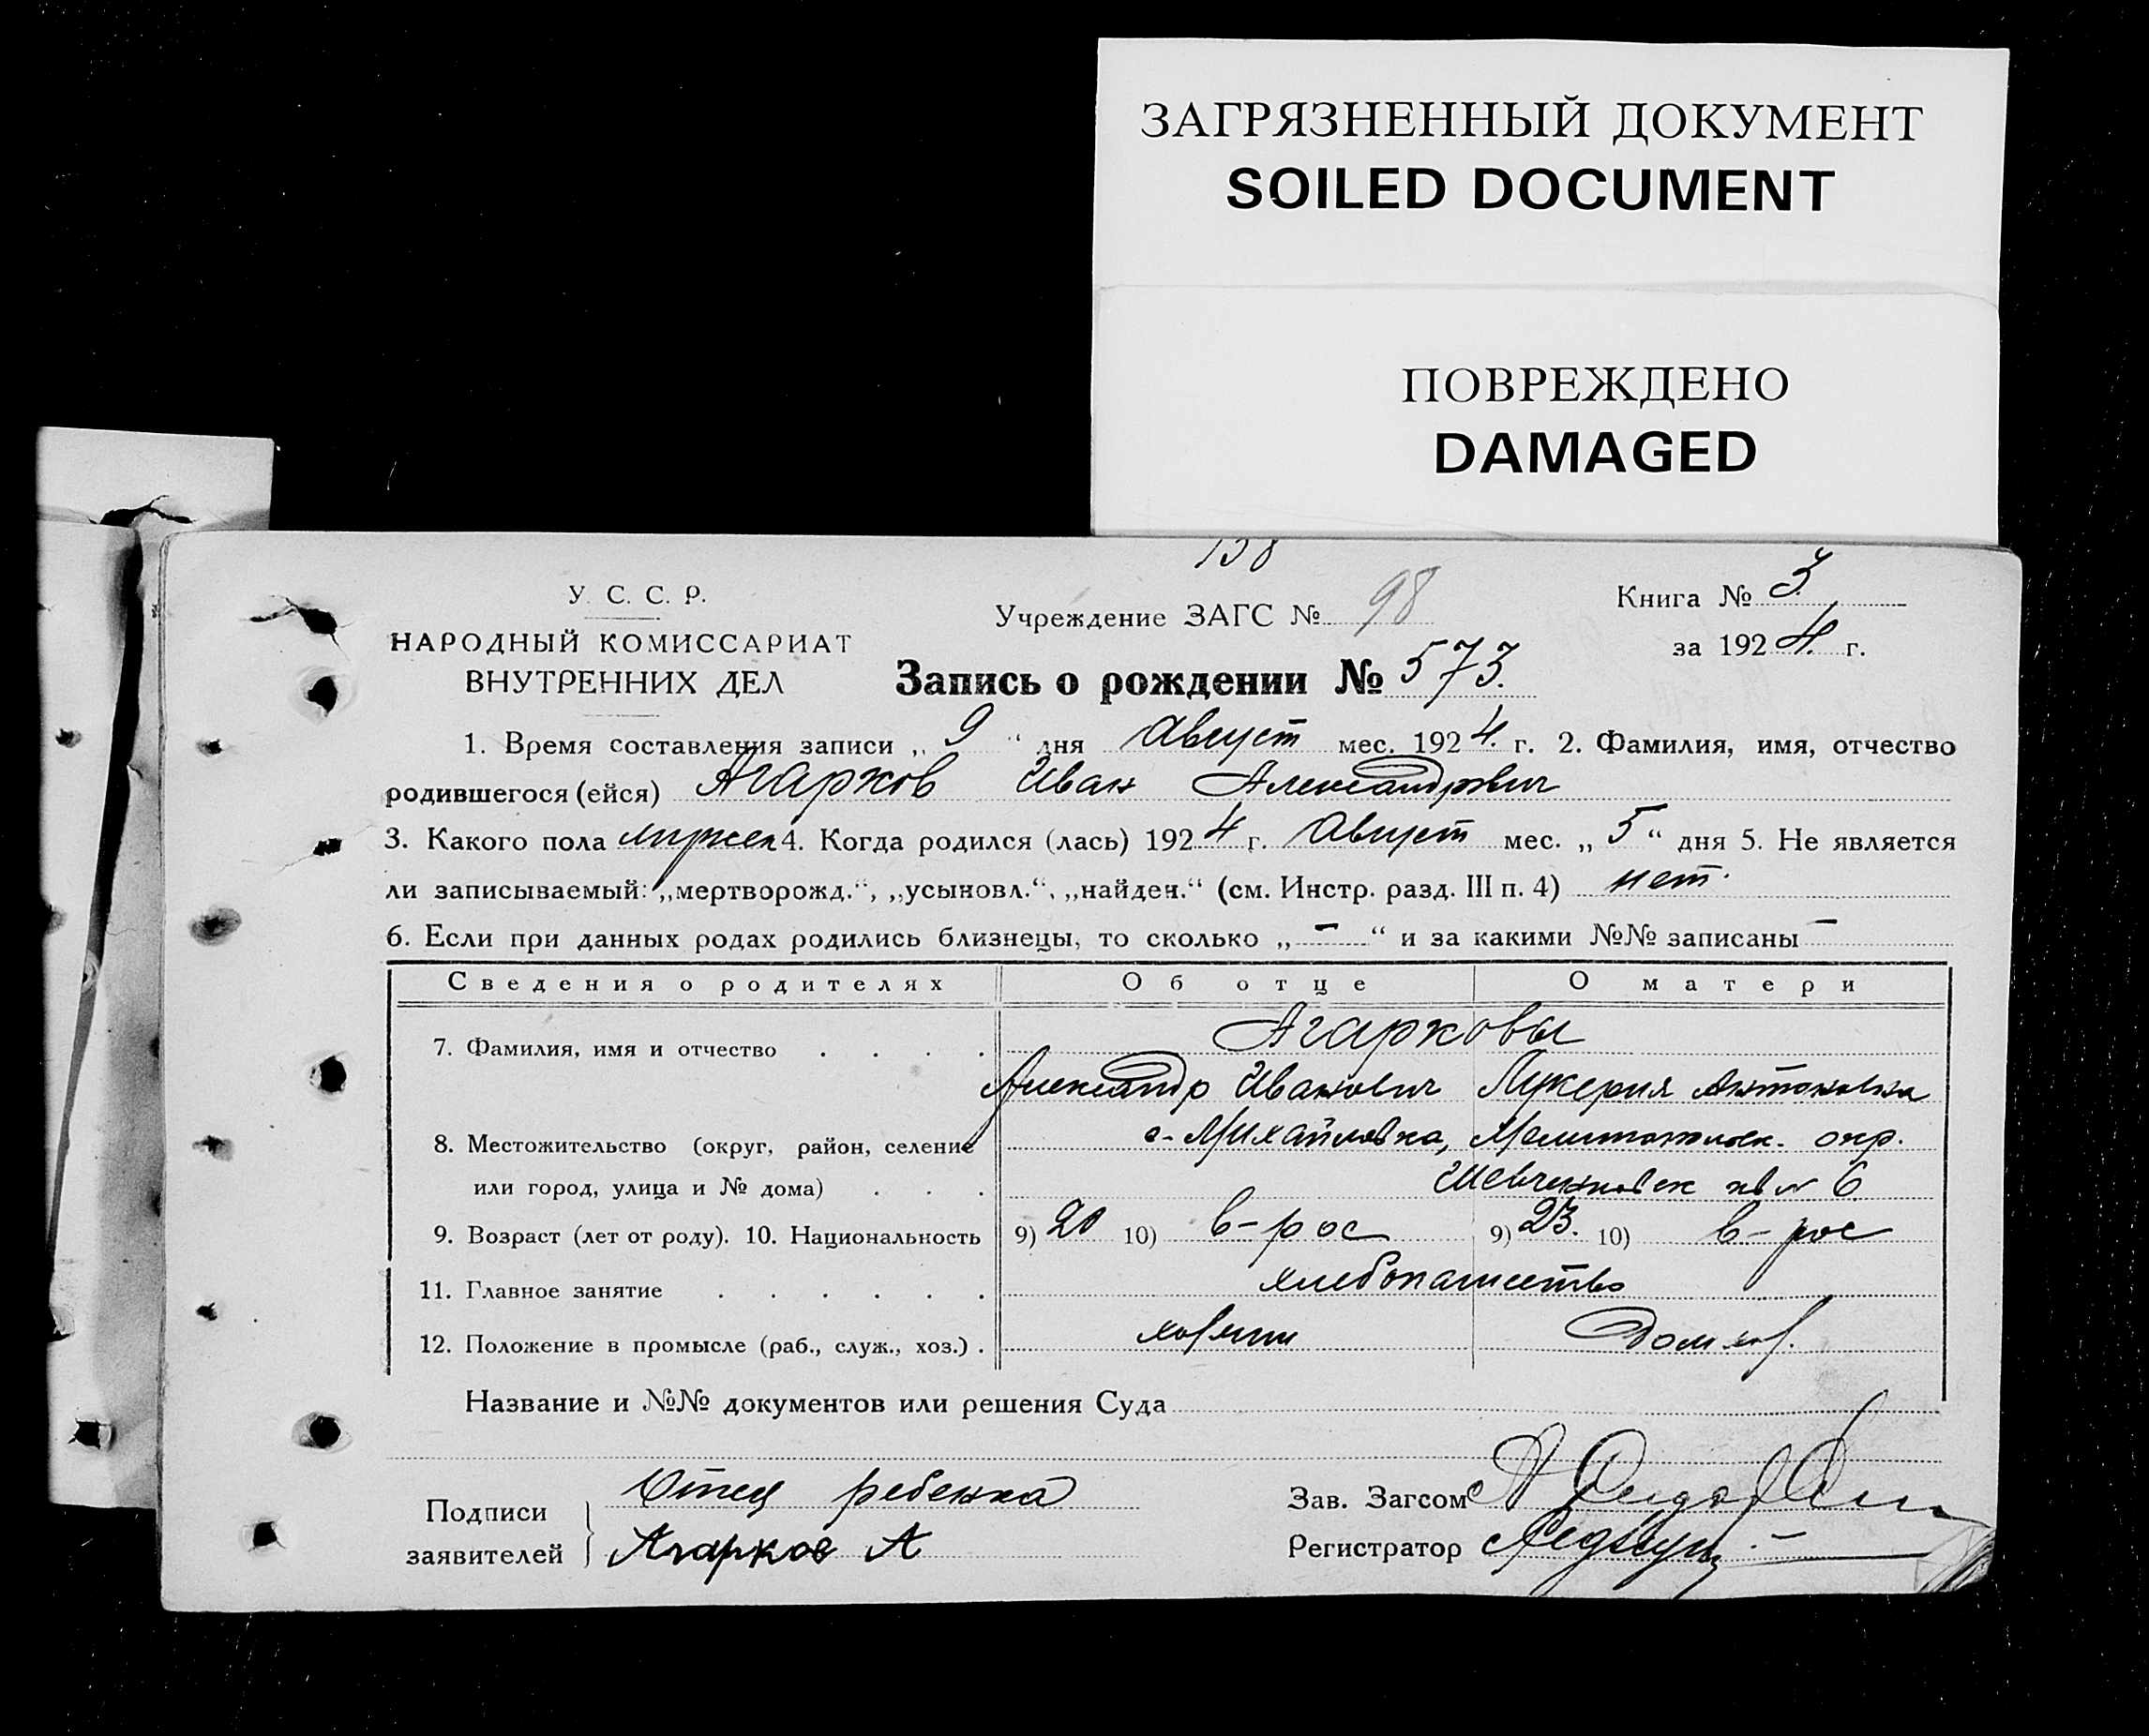 ЗАГРЯЗНЕННЫЙ ДОКУМЕНТ
SOILED DOCUMENT
ПОВРЕЖДЕНО
DAMAGED
138
У. С. С. Р.
НАРОДНЫЙ КОМИССАРИАТ
ВНУТРЕННИХ ДЕЛ
Учреждение ЗАГС № 98
Книга № 3.
за 1924. г.
Запись о рождении № 573.
1. Время составления записи „ 9 “ дня Август мес. 1924. г. 2. Фамилия, имя, отчество
родившегося (ейся) Агарков Иван Александрович
3. Какого пола мужск 4. Когда родился (лась) 1924 г. Август мес. „ 5 “ дня 5. Не является
ли записываемый: „мертворожд.“, „усыновл.“, „найден.“ (см. Инстр. разд. III п. 4) нет.
6. Если при данных родах родились близнецы, то сколько „ – “ и за какими №№ записаны –
Сведения о родителях Об отце О матери
7. Фамилия, имя и отчество . . . . Агарковы
Александр Иванович Лукерия Антоновна
8. Местожительство (округ, район, селение с. Михайловка, Мелитопольск. окр.
или город, улица и № дома) . . . Шевченковск кв № 6
9. Возраст (лет от роду). 10. Национальность 9) 20 10) в-рос 9) 23. 10) в-рос
11. Главное занятие . . . . . . хлебопашество
12. Положение в промысле (раб., служ., хоз.) . Дом хоз.
Название и №№ документов или решения Суда
Подписи
заявителей
Отец ребенка
Агарков А
Зав. Загсом
Регистратор